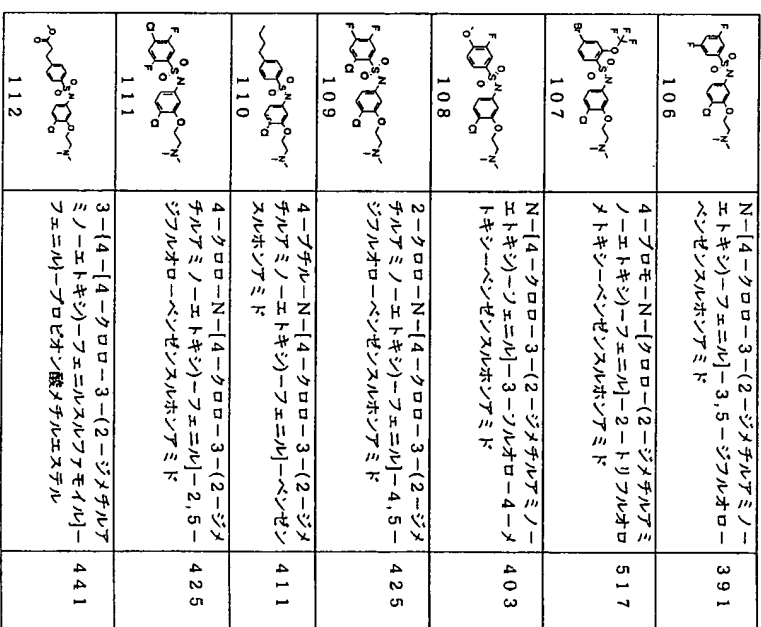 106
N-[4-クロロ-3-(2-ジメチルアミノ-
エトキシ)-フェニル]-3,5-ジフルオロ-
ベンゼンスルホンアミド
391
107
4-ブロモ-N-[クロロ-(2-ジメチルアミ
ノ-エトキシ)-フェニル]-2-トリフルオロ
メトキシ-ベンゼンスルホンアミド
517
108
N-[4-クロロ-3-(2-ジメチルアミノ-
エトキシ)-フェニル]-3-フルオロ-4-メ
トキシ-ベンゼンスルホンアミド
403
109
2-クロロ-N-[4-クロロ-3-(2-ジメ
チルアミノ-エトキシ)-フェニル]-4,5-
ジフルオロ-ベンゼンスルホンアミド
425
110
4-ブチル-N-[4-クロロ-3-(2-ジメ
チルアミノ-エトキシ)-フェニル]-ベンゼン
スルホンアミド
411
111
4-クロロ-N-[4-クロロ-3-(2-ジメ
チルアミノ-エトキシ)-フェニル]-2,5-
ジフルオロ-ベンゼンスルホンアミド
425
112
3-{4-[4-クロロ-3-(2-ジメチルア
ミノ-エトキシ)-フェニルスルファモイル]-
フェニル}-プロピオン酸メチルエステル
441